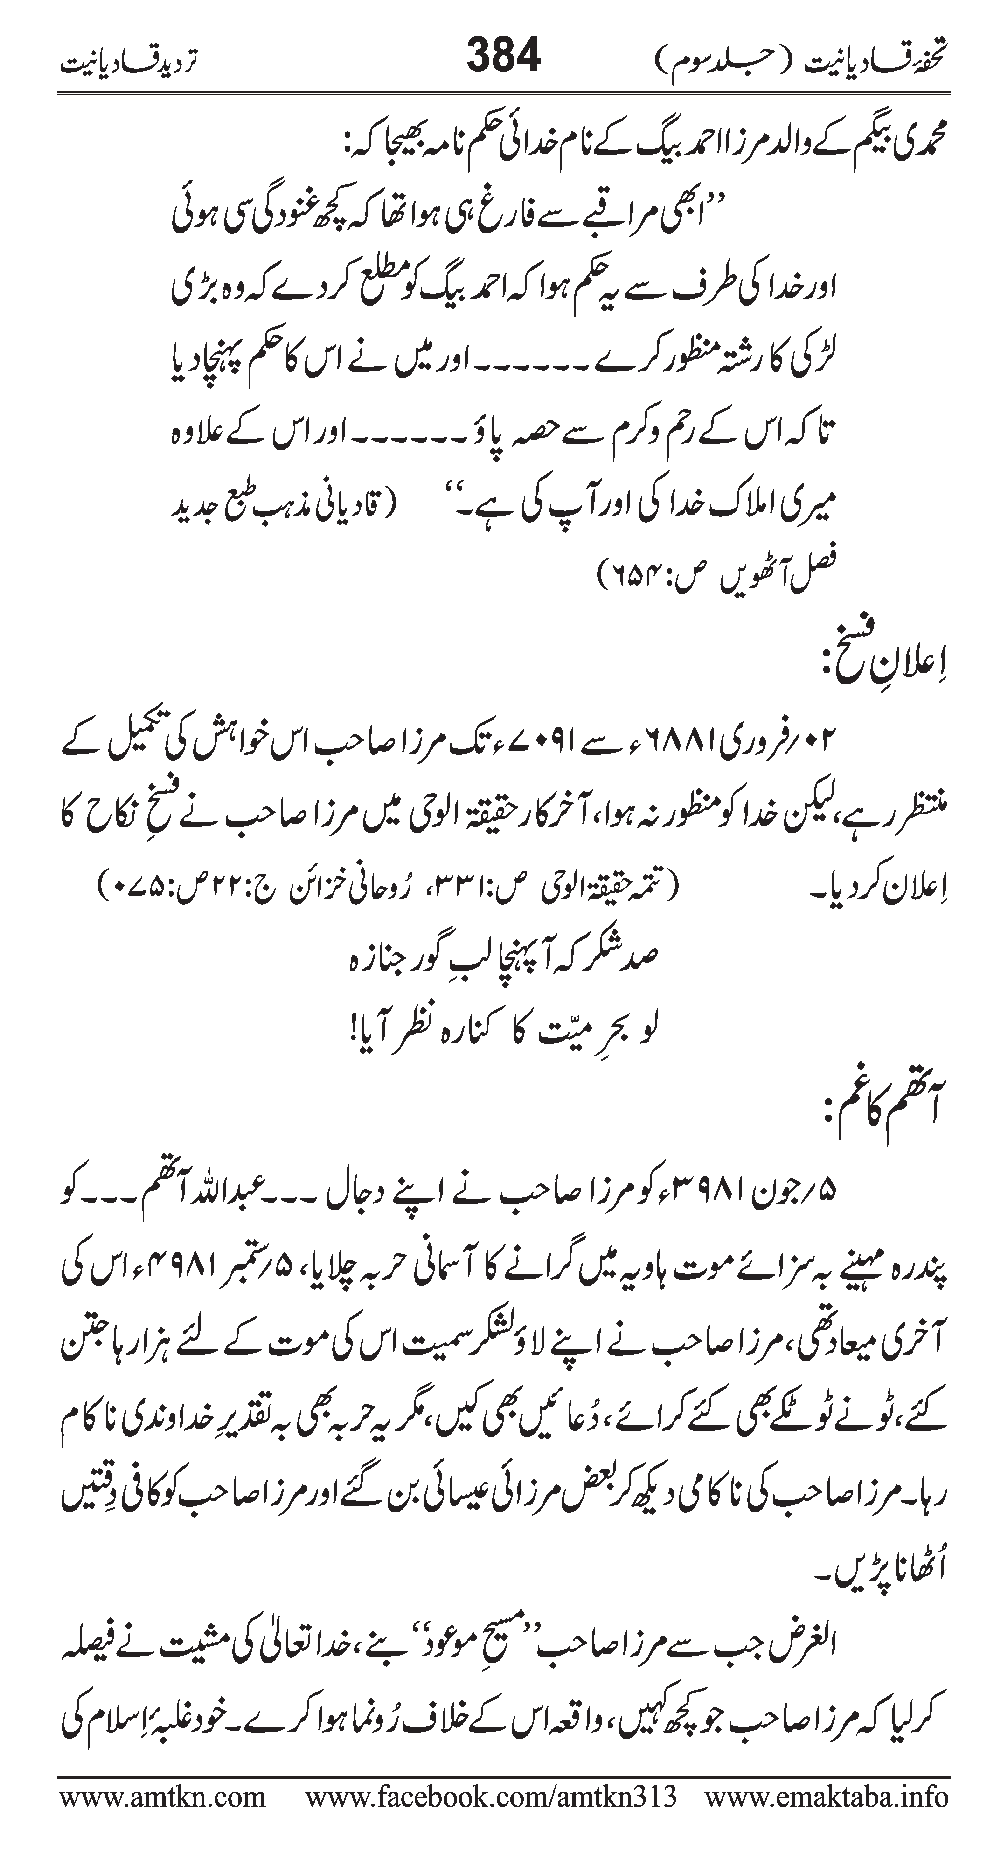 تحفۂ قادیانیت (جلد سوم) 384 تردید قادیانیت
محمدی بیگم کے والد مرزا احمد بیگ کے نام خدائی حکم نامہ بھیجا کہ:
”ابھی مراقبے سے فارغ ہی ہوا تھا کہ کچھ غنودگی سی ہوئی
اور خدا کی طرف سے یہ حکم ہوا کہ احمد بیگ کو مطلع کردے کہ وہ بڑی
لڑکی کا رشتہ منظور کرے ۔۔۔۔۔۔ اور میں نے اس کا حکم پہنچادیا
تاکہ اس کے رحم وکرم سے حصہ پاؤ ۔۔۔۔۔۔ اور اس کے علاوہ
میری املاک خدا کی اور آپ کی ہے۔“ (قادیانی مذہب طبع جدید
فصل آٹھویں ص:۶۵۴)
اِعلانِ فسخ:
۰۲؍فروری ۶۸۸۱ء سے ۷۰۹۱ء تک مرزا صاحب اس خواہش کی تکمیل کے
منتظر رہے، لیکن خدا کو منظور نہ ہوا، آخرکار حقیقۃ الوحی میں مرزا صاحب نے فسخِ نکاح کا
اِعلان کردیا۔ (تتمہ حقیقۃ الوحی ص:۳۳۱، رُوحانی خزائن ج:۲۲ ص:۰۷۵)
صد شکر کہ آ پہنچا لبِ گور جنازہ
لو بحرِ میّت کا کنارہ نظر آیا!
آتھم کا غم:
۵؍جون ۳۹۸۱ء کو مرزا صاحب نے اپنے دجال ۔۔۔عبداللہ آتھم۔۔۔ کو
پندرہ مہینے بہ سزائے موت ہاویہ میں گرانے کا آسمانی حربہ چلایا، ۵؍ستمبر ۴۹۸۱ء اس کی
آخری میعاد تھی، مرزا صاحب نے اپنے لاؤ لشکر سمیت اس کی موت کے لئے ہزارہا جتن
کئے، ٹونے ٹوٹکے بھی کئے کرائے، دُعائیں بھی کیں، مگر یہ حربہ بھی بہ تقدیرِ خداوندی ناکام
رہا۔ مرزا صاحب کی ناکامی دیکھ کر بعض مرزائی عیسائی بن گئے اور مرزا صاحب کو کافی دِقتیں
اُٹھانا پڑیں۔
الغرض جب سے مرزا صاحب ”مسیحِ موعود“ بنے، خدا تعالیٰ کی مشیت نے فیصلہ
کرلیا کہ مرزا صاحب جو کچھ کہیں، واقعہ اس کے خلاف رُونما ہوا کرے۔ خود غلبۂ اِسلام کی
www.amtkn.com www.facebook.com/amtkn313 www.emaktaba.info